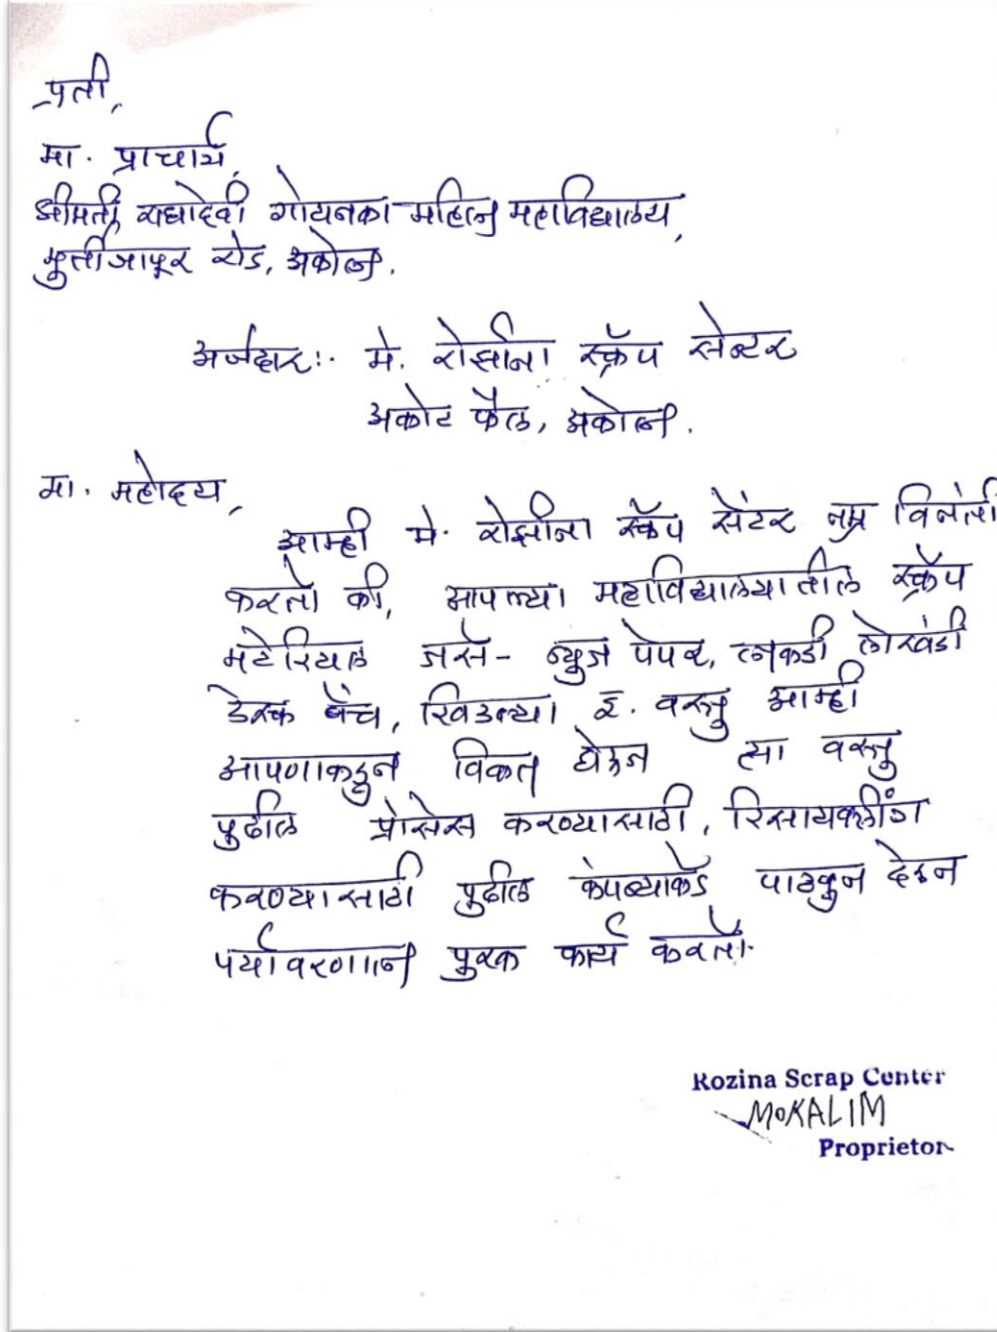 प्रती,
मा. प्राचार्य,
श्रीमती राधादेवी गोयनका महिला महाविद्यालय,
मुर्तीजापूर रोड, अकोला.
अर्जदार:- मे. रोझीना स्क्रॅप सेन्टर
अकोट फैल, अकोला.
मा. महोदय,
आम्ही मे. रोझीना स्क्रॅप सेंटर नम्र विनंती
करतो की, आपल्या महाविद्यालयातील स्क्रॅप
मटेरियल जसे- न्युज पेपर, लाकडी लोखंडी
डेस्क बॅंच, खिडक्या इ. वस्तु आम्ही
आपणाकडुन विकत घेऊन त्या वस्तु
पुढील प्रोसेस करण्यासाठी, रिसायकलींग
करण्यासाठी पुढील कंपन्याकडे पाठवुन देऊन
पर्यावरणाला पुरक कार्य करतो.
Rozina Scrap Center
MOKALIM
Proprietor